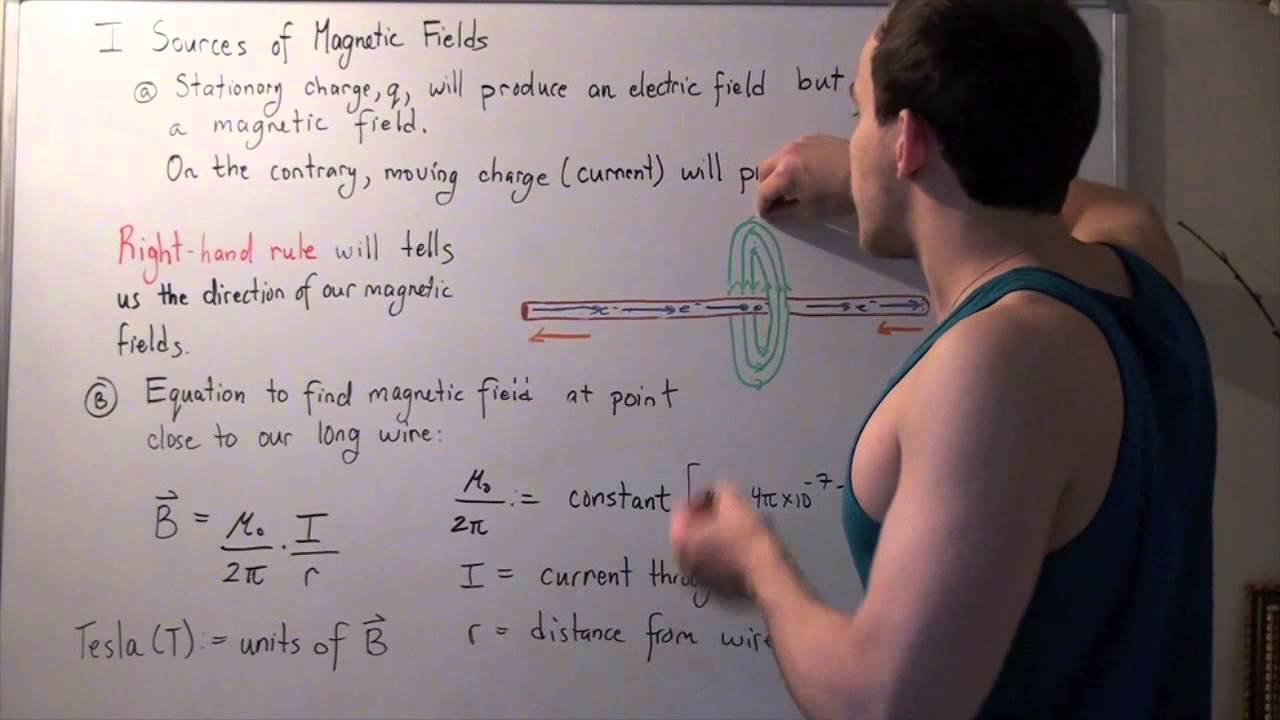 I Sources of Magnetic Fields
ⓐ Stationary charge, q, will produce an electric field but
a magnetic field.
On the contrary, moving charge (current) will
Right-hand rule will tells
us the direction of our magnetic
fields.
e⁻ e⁻ e⁻
Ⓑ Equation to find magnetic field at point
close to our long wire:
B⃗ = μ₀/2π · I/r
μ₀/2π := constant [ 4π×10⁻⁷
I = current
r = distance from wire
Tesla (T) := units of B⃗